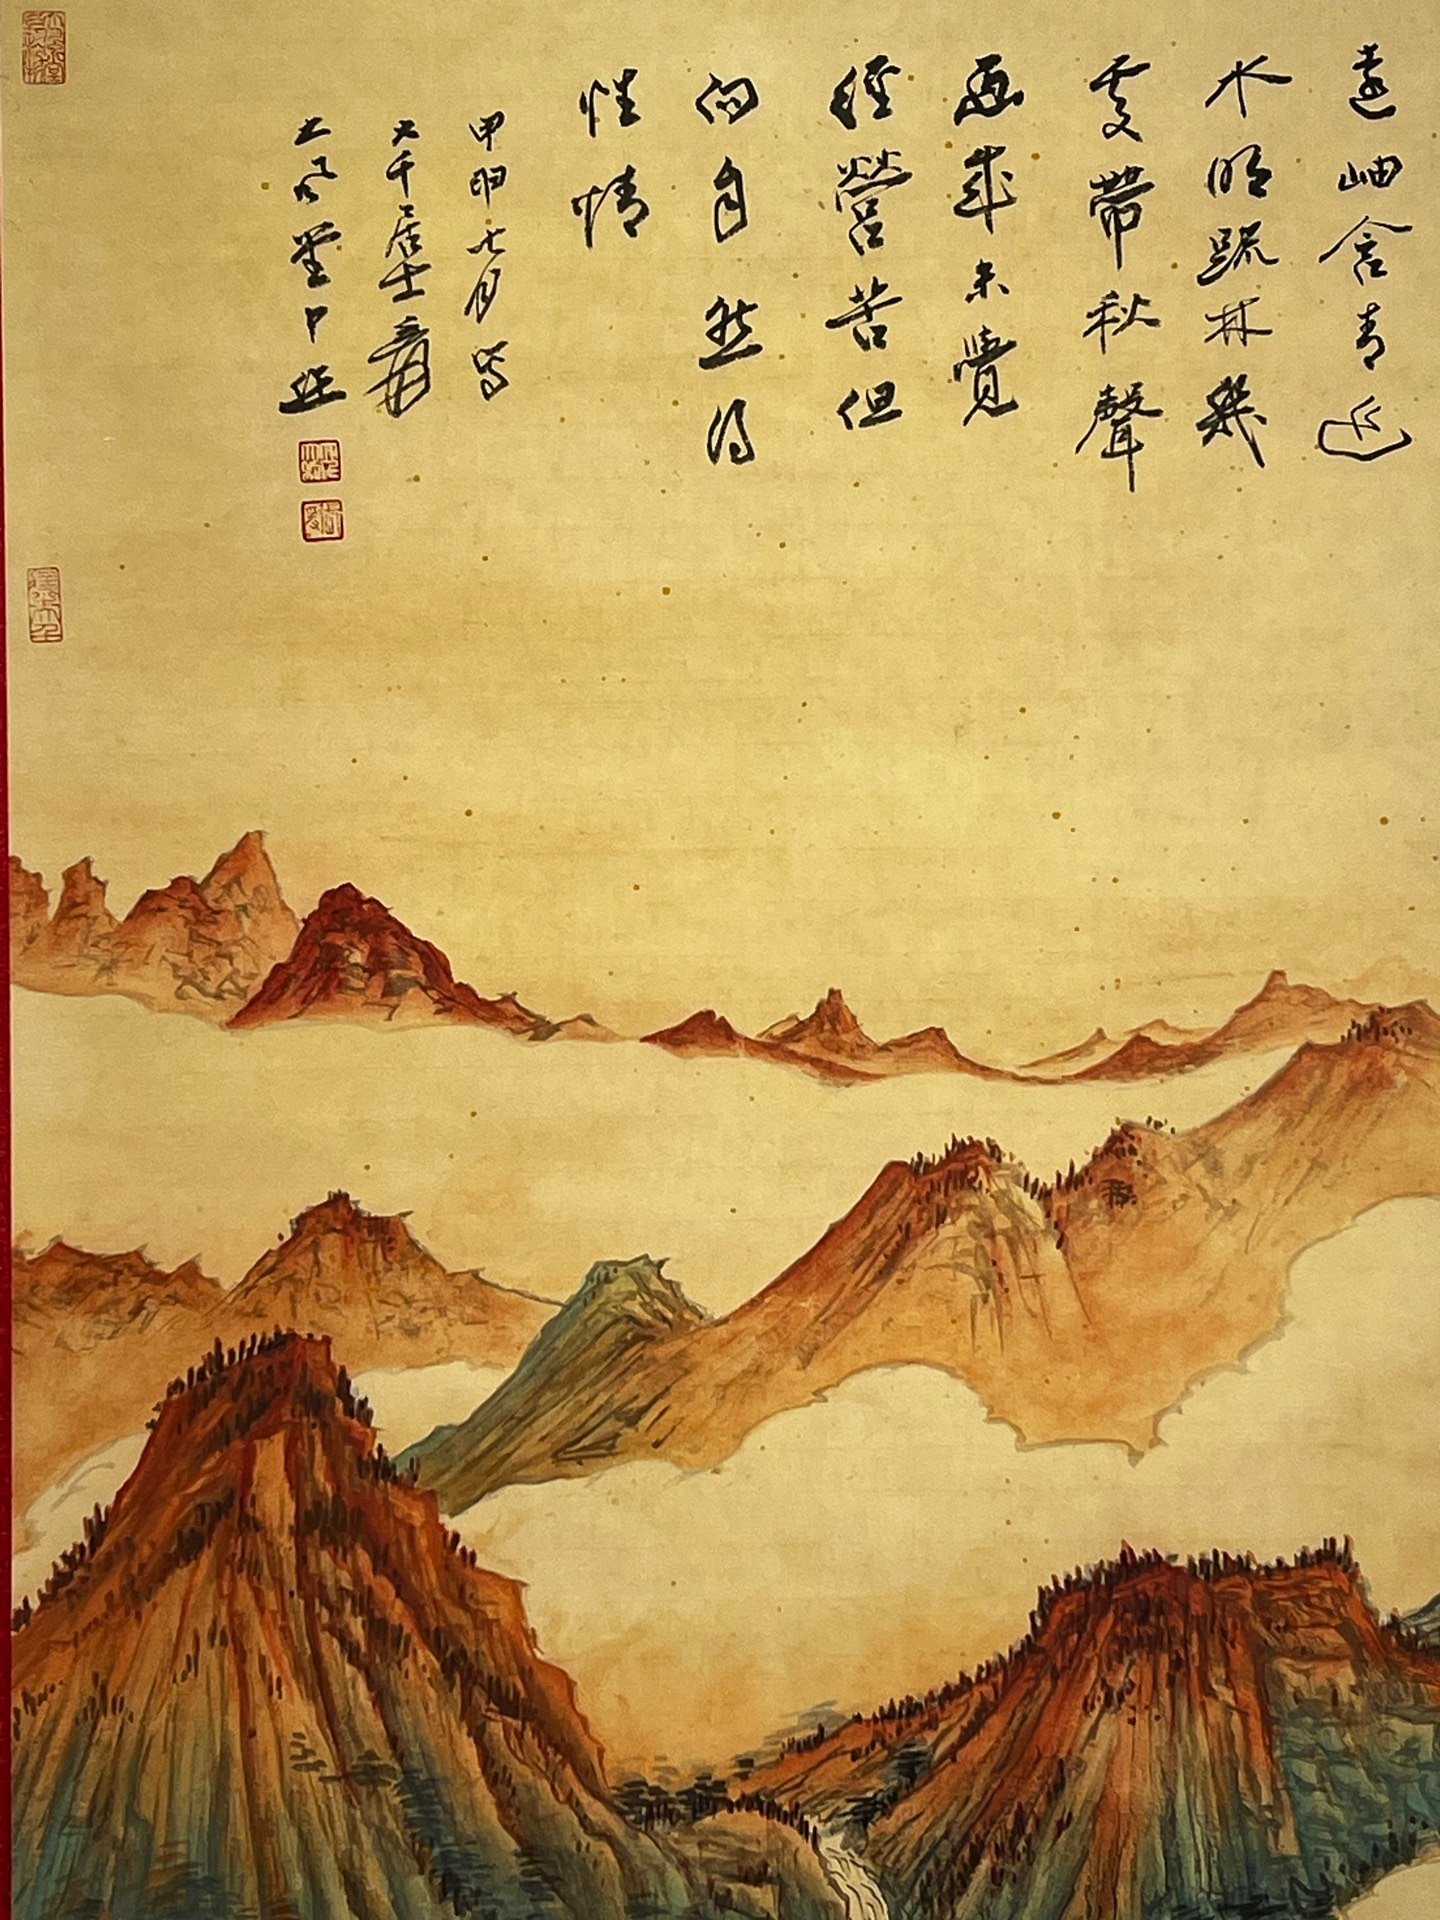 遠岫含青近
水明疏林幾
處帶秋聲
畫成未覺
經營苦但
向自然得
性情
甲申七月寫
大千居士爰
大風堂下並